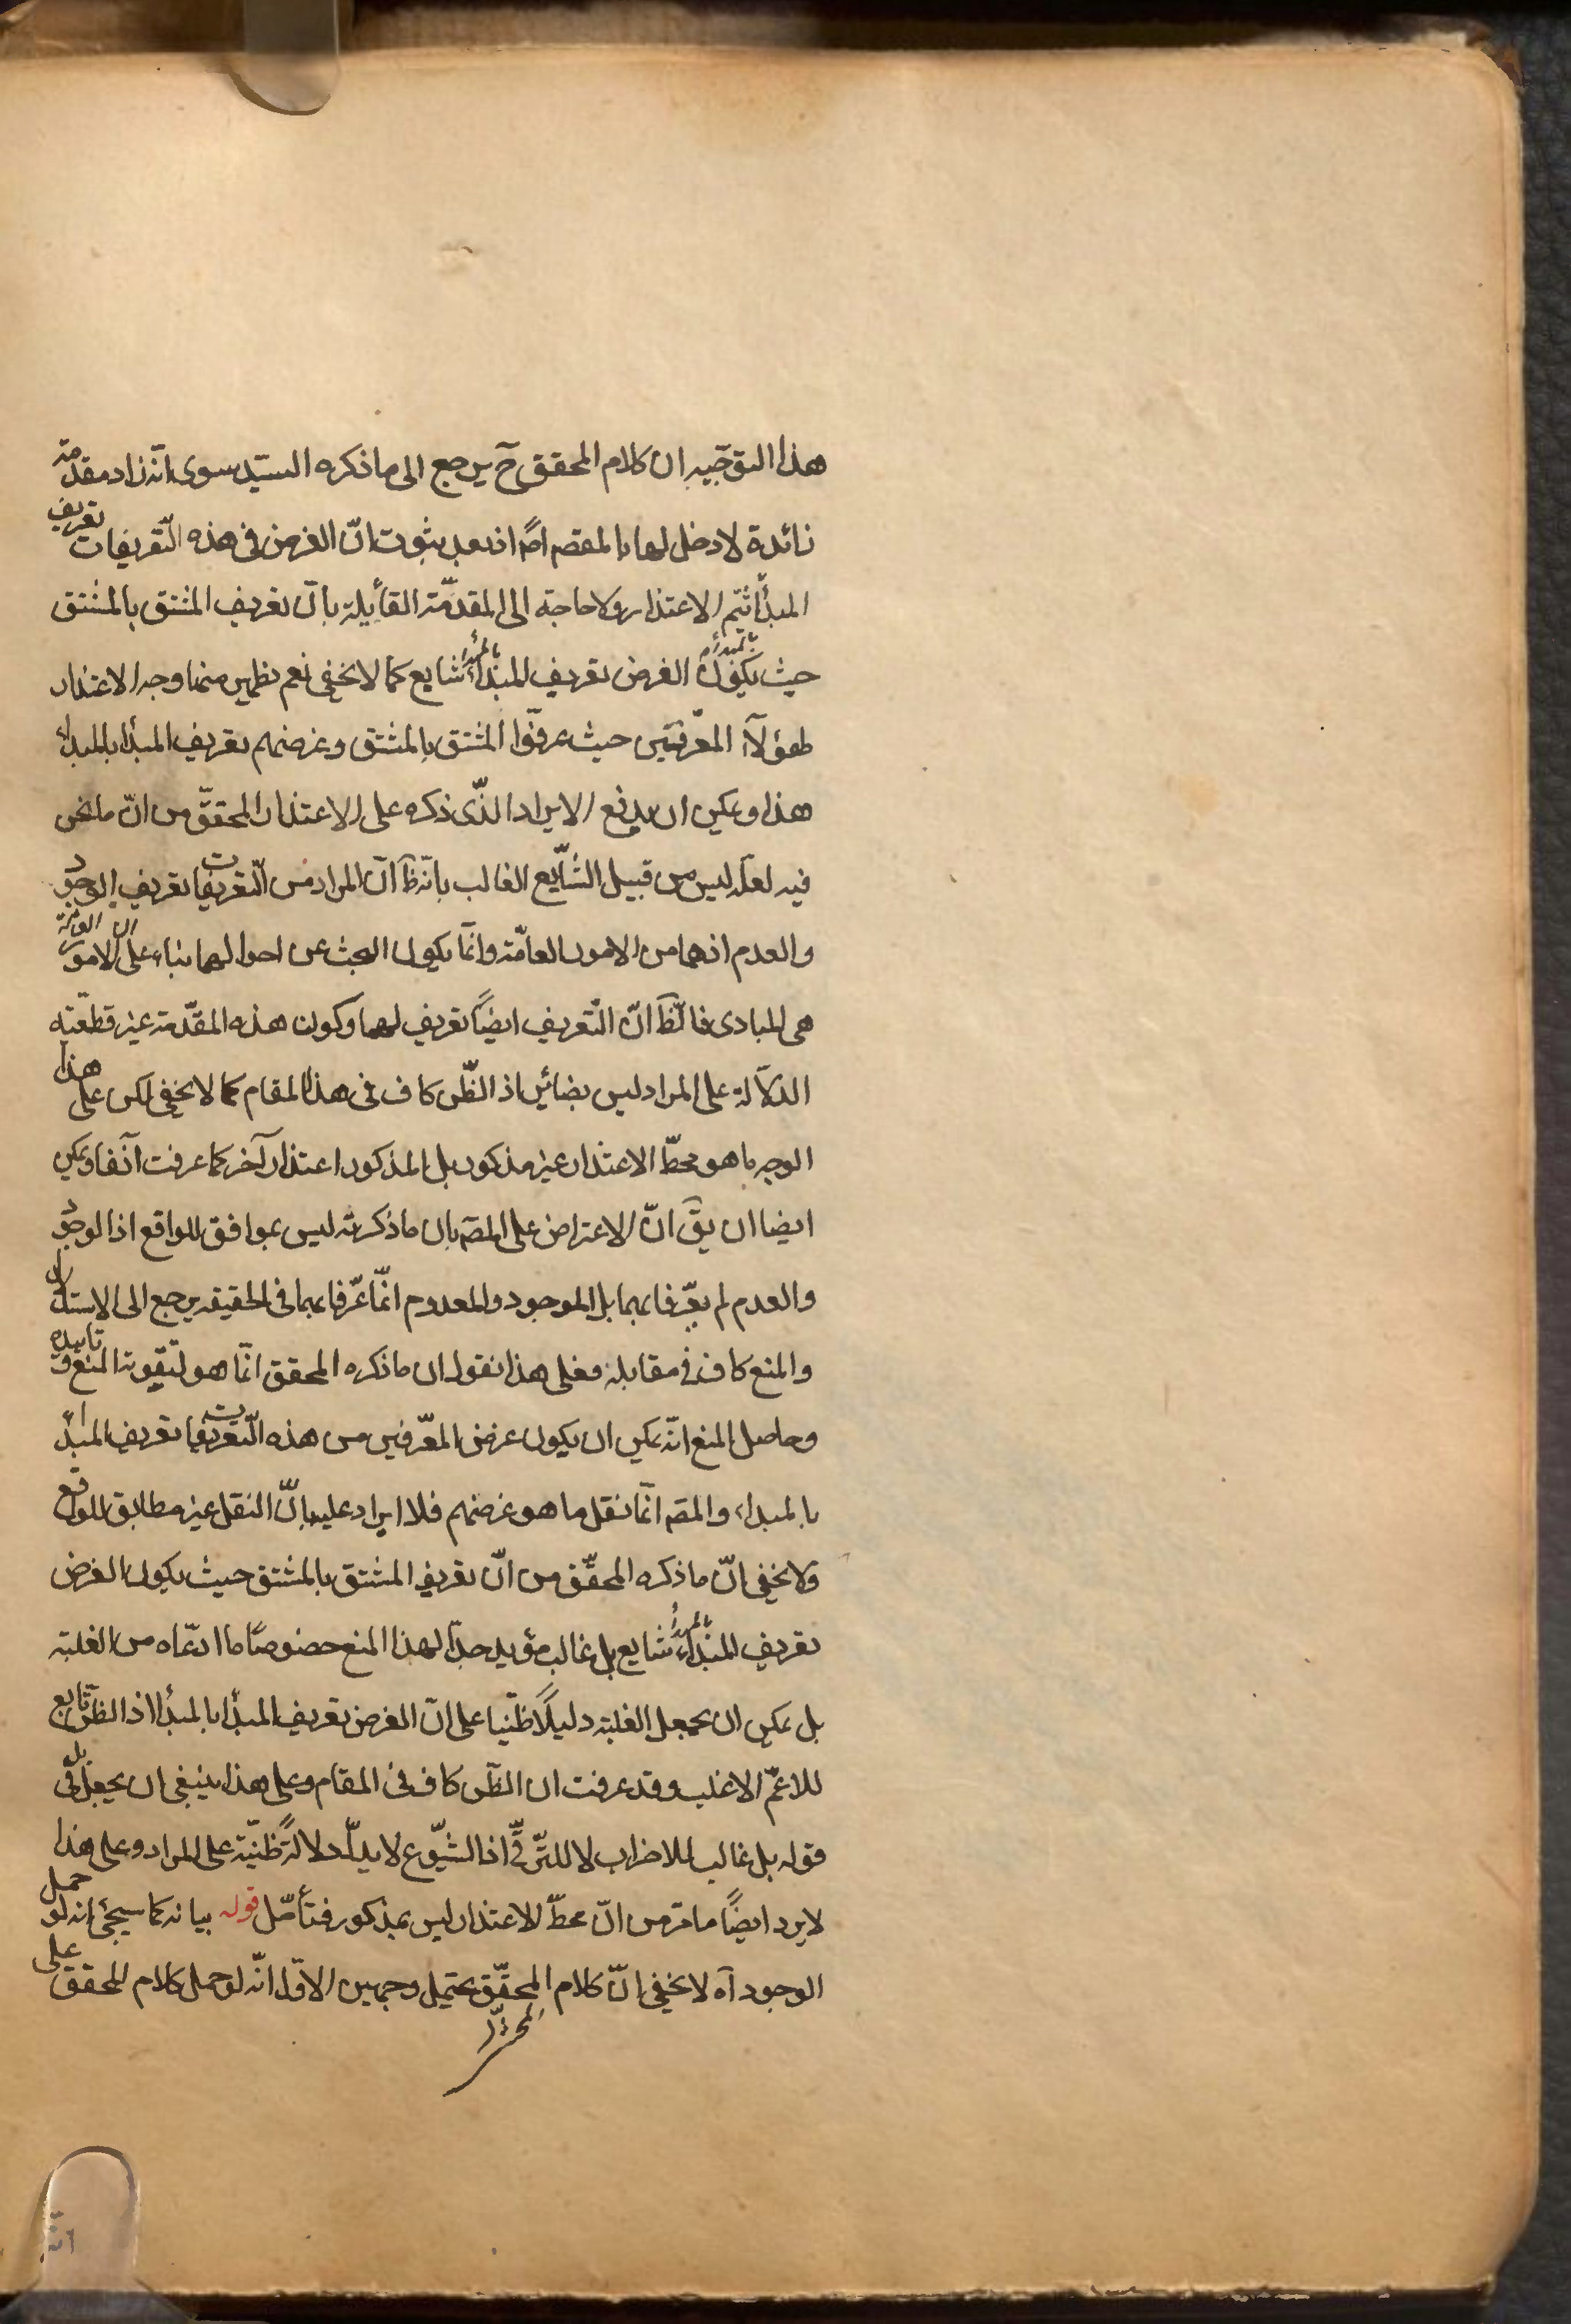 هذا التوجيه ان كلام المحقق ح يرجع الى ما ذكره السيد سوى انّه زاد مقدمة
زائدة لا دخل لها بالمقصم اصً اذ بعد ثبوت انّ الغرض فى هذه التّعريفات تعريف
المبدأ يتم الاعتذار ولا حاجة الى المقدّمة القائلة بانّ تعريف المشتق بالمشتق
حيث يكون الغرض تعريف المبدأ بالمبدأ شايع كما لا يخفى نعم يظهر منها وجه الاعتذار
لهؤلاء المعرّفين حيث عرفّوا المشتق بالمشتق وغرضهم تعريف المبدا بالمبدأ
هذا ويمكن ان يدفع الايراد الذّى ذكره على الاعتذار المحقّق من انّ ما نحن
فيه لعلّه ليس من قبيل الشّايع الغالب بانّه ظ انّ المراد من التّعريفات تعريف الوجود
والعدم اذ هما من الامور العامّة وانّما يكون البحث عن احوالهما بناء على ان الامور العامّة
هى المبادى فالظّ انّ التّعريف ايضاً تعريف لهما وكون هذه المقدّمة غير قطعيّة
الدّلالة على المراد ليس بضائر اذ الظّن كاف فى هذا المقام كما لا يخفى لكن على هذا
الوجه ما هو محطّ الاعتذار غير مذكور بل المذكور اعتذار آخر كما عرفت آنفا ويمكن
ايضا ان يق انّ الاعتراض على المصّ بان ما ذكرته ليس بموافق للواقع اذ الوجود
والعدم لم يعرّفا بهما بل الموجود والمعدوم انّما عرّفا بهما فى الحقيقة يرجع الى الاستدلال
والمنع كاف فى مقابلة فعلى هذا نقول ان ما ذكره المحقق انّما هو لتقوية المنع وتاييده
وحاصل المنع انّه يمكن ان يكون غرض المعّرفين من هذه التّعريفات تعريف المبدأ
بالمبداء والمصّ انّما نقل ما هو غرضهم فلا ايراد عليه بانّ النقل غير مطابق للواقع
ولا يخفى انّ ما ذكره المحقّق من انّ تعريف المشتق بالمشتق حيث يكون الغرض
تعريف المبدأ بالمبدأ شايع بل غالب مؤيد جدّا لهذا المنع خصوصًا ما ادعّاه من الغلبة
بل يمكن ان يجعل الغلبة دليلًا ظنّيا على انّ الغرض تعريف المبدأ بالمبدأ اذ الظّن تابع
للاعمّ الاغلب وقد عرفت ان الظّن كاف فى المقام وعلى هذا ينبغى ان يجعل بل فى
قوله بل غالب للاضراب لا للترّقى اذ الشيّوع لا يدلّ دلالةً ظنيّة على المراد وعلى هذا
لا يرد ايضًا ما مرّ من انّ محطّ الاعتذار ليس بمذكور فتأمّل قوله بيانه كما سيجئ انه لو حمل
الوجود آه لا يخفى انّ كلام المحقّق يحتمل وجهين الاوّل انّه لو حمل كلام المحقق على